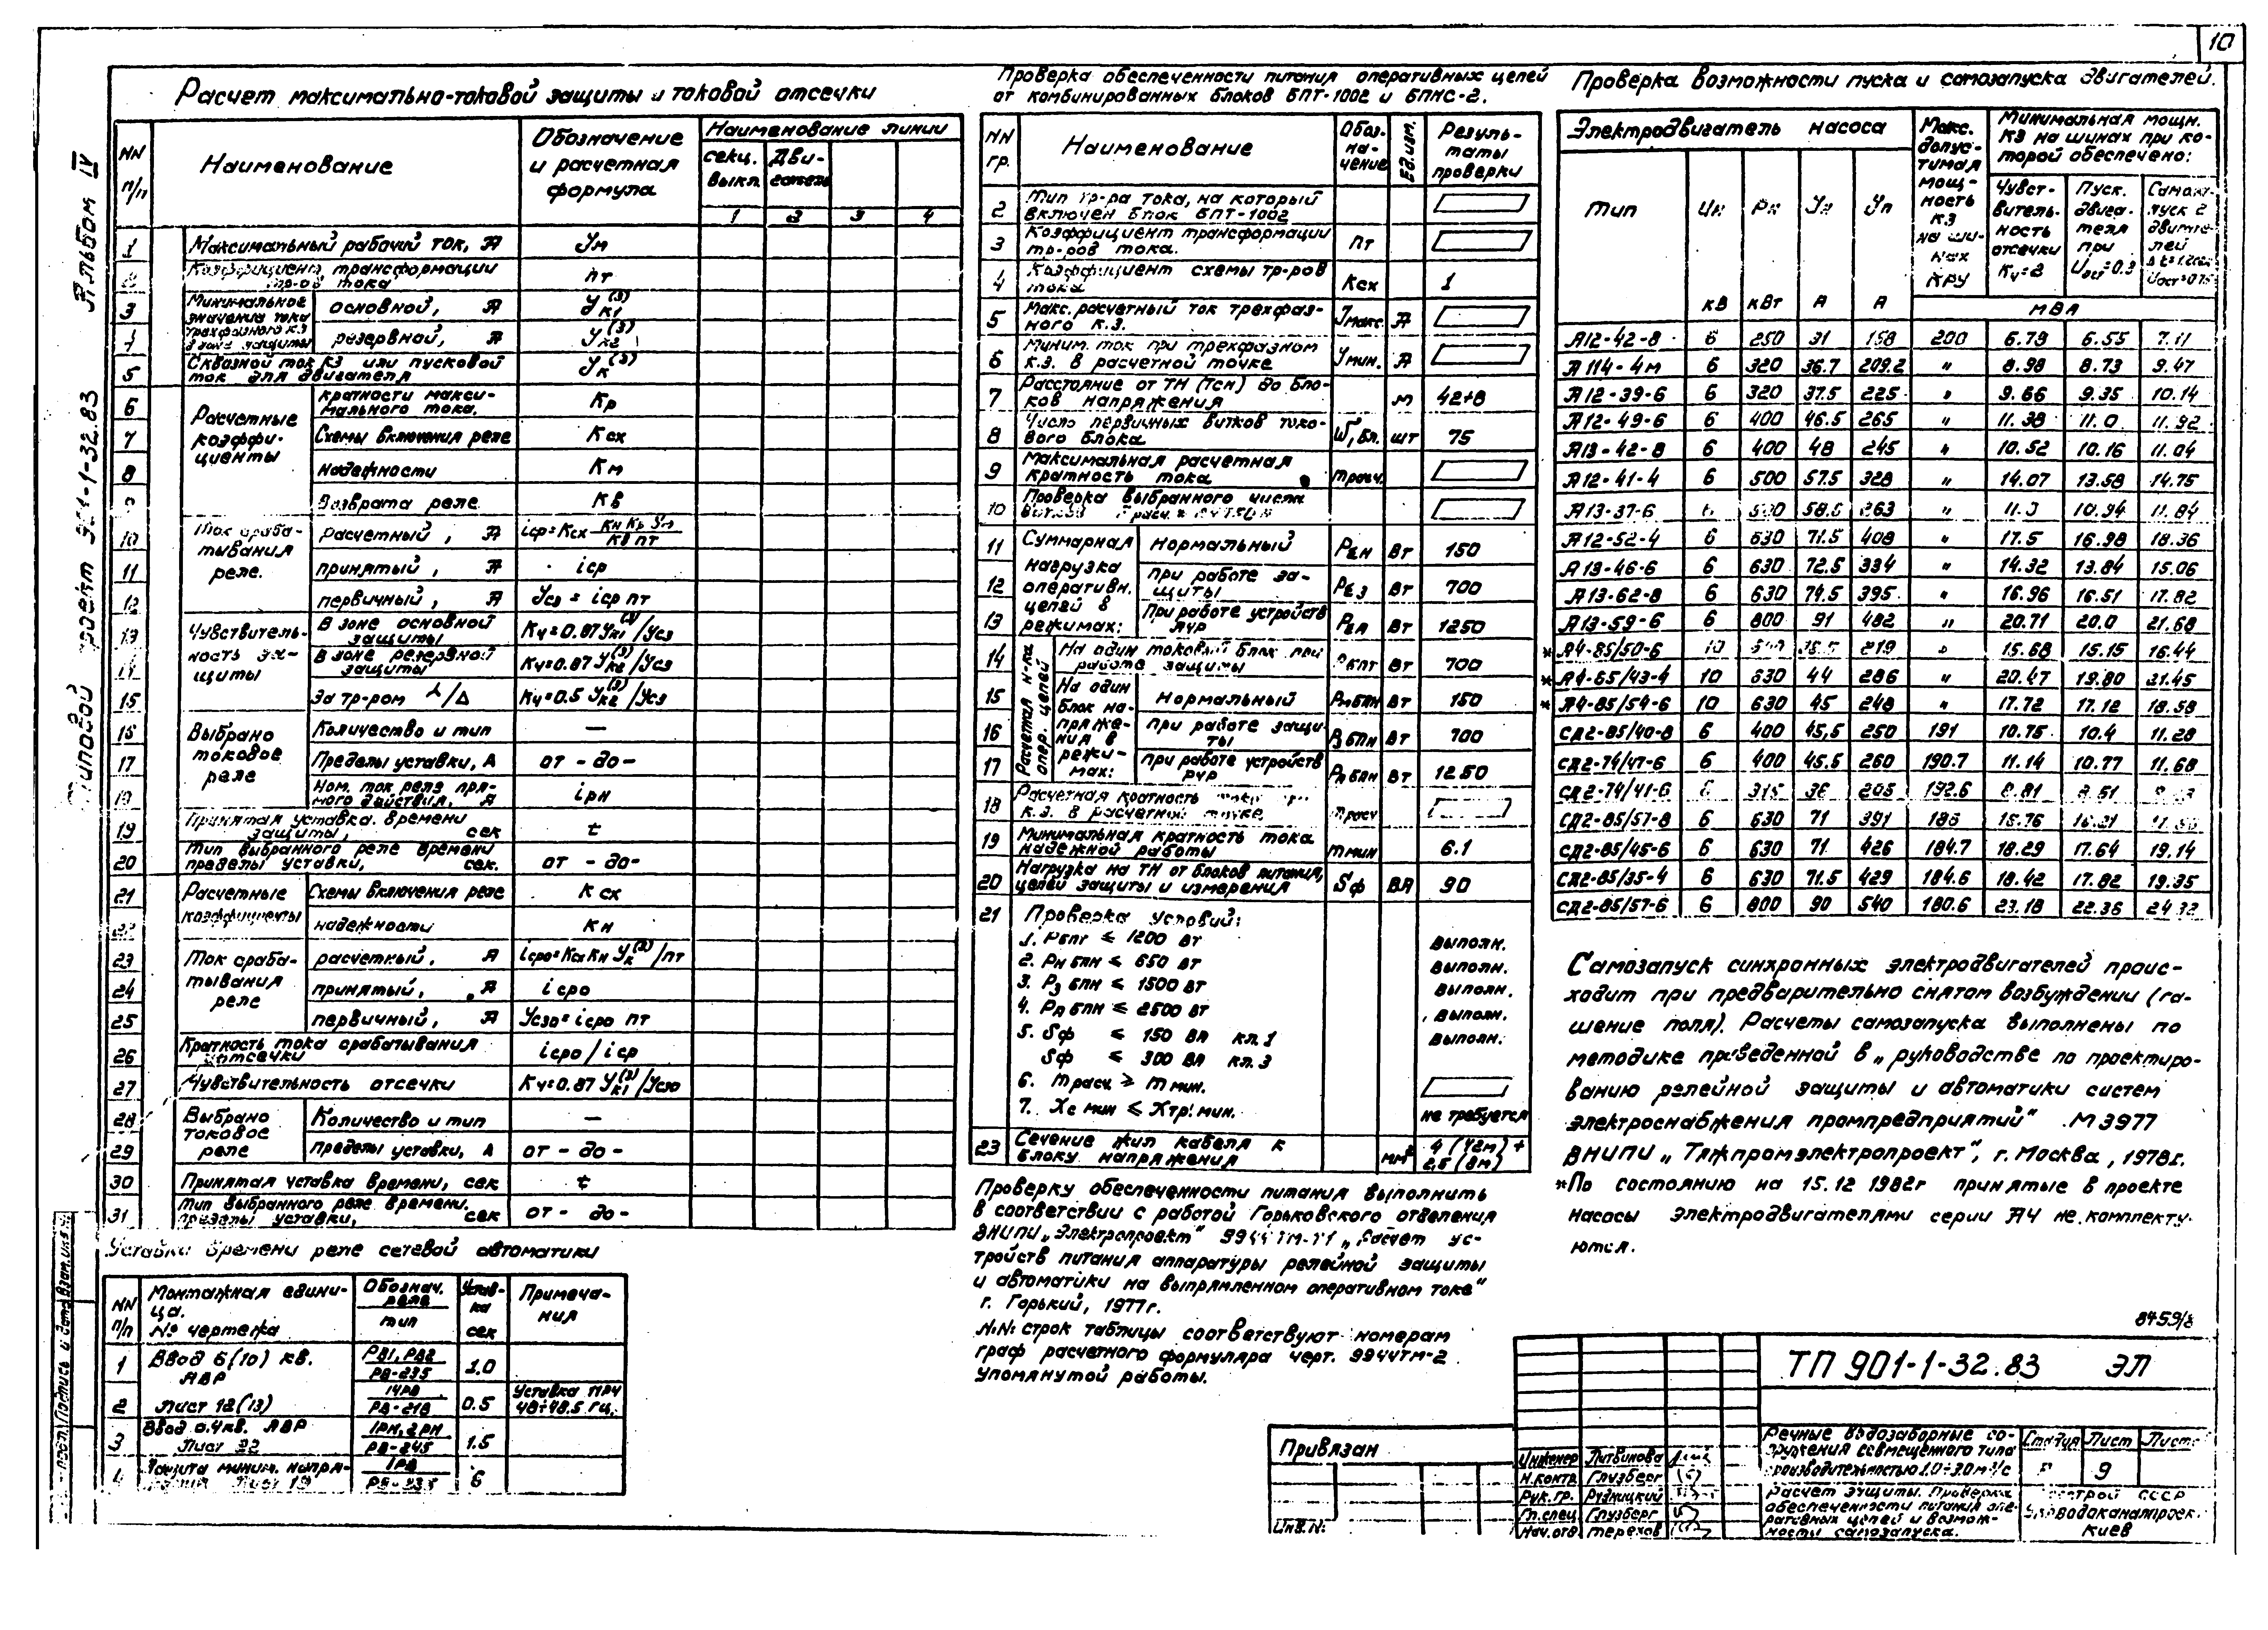 10
Альбом IV
Типовой проект 901-1-32.83
Расчет максимально-токовой защиты и токовой отсечки
NN п/п
Наименование
Обозначение и расчетная формула
Наименование линии
секц. выкл.
Двигатель
1 2 3 4
1 Максимальный рабочий ток, А Ум
2 Коэффициент трансформации тр-ов тока nт
Минимальное значение тока трехфазного к.з. в зоне защиты
3 основной, А У(3)к1
4 резервной, А У(3)к2
5 Сквозной ток КЗ или пусковой ток для двигателя У(3)к
Расчетные коэффициенты
6 кратности максимального тока. Кр
7 Схемы включения реле Ксх
8 надежности Км
9 Возврата реле Кв
Ток срабатывания реле.
10 расчетный, А iср=Ксх Кн Кр Ум / Кв nт
11 принятый, А iср
12 первичный, А Усз = iср nт
Чувствительность защиты
13 В зоне основной защиты Кч=0.87 У(3)к1/Усз
14 В зоне резервной защиты Кч=0.87 У(3)к2/Усз
15 За тр-ром ⅄/Δ Кч=0.5 У(3)к2/Усз
Выбрано токовое реле
16 Количество и тип —
17 Пределы уставки, А от - до-
18 Ном. ток реле прямого действия, А iрн
19 Принятая уставка времени защиты, сек t
20 Тип выбранного реле времени пределы уставки, сек. от - до-
Расчетные коэффициенты
21 Схемы включения реле Ксх
22 надежности Кн
Ток срабатывания реле
23 расчетный, А iсро=Ксх Кн У(3)к/nт
24 принятый, А iсро
25 первичный, А Усзо=iсро nт
26 Кратность тока срабатывания отсечки iсро/iср
27 Чувствительность отсечки Кч=0.87 У(3)к1/Усзо
Выбрано токовое реле
28 Количество и тип —
29 пределы уставки, А от - до -
30 Принятая уставка времени, сек t
31 Тип выбранного реле времени, пределы уставки, сек от - до-
Уставки времени реле сетевой автоматики
NN п/п
Монтажная единица. № чертежа
Обознач. реле тип
Уставка сек
Примечания
1 Ввод 6(10) кв. АВР РВ1, РВ2 РВ-235 1.0
2 Лист 12(13) 14РВ РВ-218 0.5 Уставка АРЧ 48÷48.5 Гц.
3 Ввод 0.4кв. АВР Лист 22 1РН, 2РН РВ-245 1.5
4 Защита миним. напряжения Лист 19 1РВ РВ-235 6
Проверка обеспеченности питания оперативных цепей
от комбинированных блоков БПТ-1002 и БПНС-2.
NN гр.
Наименование
Обозначение
Ед.изм.
Результаты проверки
2 Тип тр-ра тока, на который включен блок БПТ-1002
3 Коэффициент трансформации тр-ров тока. nт
4 Коэффициент схемы тр-ров тока Ксх 1
5 Макс. расчетный ток трехфазного к.з. Jмакс. А
6 Миним. ток при трехфазном к.з. в расчетной точке Умин. А
7 Расстояние от ТН (ТСН) до блоков напряжения м 42+8
8 Число первичных витков токового блока W1бл. шт 75
9 Максимальная расчетная кратность тока mрасч.
10 Проверка выбранного числа витков
Суммарная нагрузка оперативн. цепей в режимах:
11 нормальный РΣн Вт 150
12 при работе защиты РΣз Вт 700
13 При работе устройств АЧР РΣА Вт 1250
Расчетная н-ка опер. цепей
14 На один токовый блок при работе защиты Рбпт Вт 700
На один блок напряжения в режимах:
15 Нормальный Рнбпн Вт 150
16 при работе защиты Рзбпн Вт 700
17 при работе устройств РЧР РАбпн Вт 1250
18 Расчетная кратность тока при к.з. в расчетной точке mрасч
19 Минимальная кратность тока надежной работы mмин 6.1
20 Нагрузка на ТН от блоков питания, цепей защиты и измерения Sф ВА 90
21 Проверка условий:
1. Рбпт ≤ 1200 вт выполн.
2. Рн бпн ≤ 650 вт выполн.
3. Рз бпн ≤ 1500 вт выполн.
4. РА бпн ≤ 2500 вт выполн.
5. Sф ≤ 150 ва кл.1 выполн.
Sф ≤ 300 ва кл.3
6. mрасч ≥ mмин.
7. Хс мин ≤ Хтр. мин. не требуется
23 Сечение жил кабеля к блоку напряжения мм² 4 (42м) + 2,5 (8м)
Проверку обеспеченности питания выполнить
в соответствии с работой Горьковского отделения
ВНИПИ „Электропроект" 9944ТМ-Т1 „Расчет ус-
тройств питания аппаратуры релейной защиты
и автоматики на выпрямленном оперативном токе"
г. Горький, 1977г.
N.N: строк таблицы соответствуют номерам
граф расчетного формуляра черт. 9944ТМ-2
Упомянутой работы.
Проверка возможности пуска и самозапуска двигателей.
Электродвигатель насоса
Макс. допустимая мощность КЗ на шинах КРУ
Минимальная мощн. КЗ на шинах при которой обеспечено:
Тип Uн Рн Ун Уп
Чувствительность отсечки Кч=2
Пуск. двигателя при
Самозапуск 2 двигателей
кв квт А А МВА
А12-42-8 6 250 31 158 200 6.79 6.55 7.11
А114-4м 6 320 36.7 209.2 " 8.98 8.73 9.47
А12-39-6 6 320 37.5 225 " 9.66 9.35 10.14
А12-49-6 6 400 46.5 265 " 11.38 11.0 11.92
А13-42-8 6 400 48 245 " 10.52 10.16 11.04
А12-41-4 6 500 57.5 328 " 14.07 13.58 14.75
А13-37-6 6 500 58.5 263 " 11.3 10.94 11.84
А12-52-4 6 630 71.5 408 " 17.5 16.98 18.36
А13-46-6 6 630 72.5 334 " 14.32 13.84 15.06
А13-62-8 6 630 79.5 395 " 16.96 16.51 17.82
А13-59-6 6 800 91 482 " 20.71 20.0 21.68
*А4-85/50-6 10 219 " 15.68 15.15 16.44
*А4-85/43-4 10 630 44 286 " 20.47 19.80 21.45
*А4-85/54-6 10 630 45 248 " 17.72 17.12 18.58
СД2-85/40-8 6 400 45,5 250 191 10.75 10.4 11.28
СД2-74/47-6 6 400 45.5 260 190.7 11.14 10.77 11.68
СД2-74/41-6 6 315 36 205 192.6 8.81 8.51
СД2-85/57-8 6 630 71 391
СД2-85/45-6 6 630 71 426 184.7 18.29 17.64 19.14
СД2-85/35-4 6 630 71.5 429 184.6 18.42 17.82 19.35
СД2-85/57-6 6 800 90 540 180.6 23.18 22.36 24.32
Самозапуск синхронных электродвигателей проис-
ходит при предварительно снятом возбуждении (га-
шение поля). Расчеты самозапуска выполнены по
методике приведенной в „руководстве по проектиро-
ванию релейной защиты и автоматики систем
электроснабжения промпредприятий" М3977
ВНИПИ „Тяжпромэлектропроект", г. Москва, 1978г.
*По состоянию на 15.12 1982г принятые в проекте
насосы электродвигателями серии А4 не комплекту-
ются.
8459/8
ТП 901-1-32.83 ЭЛ
Привязан
Инв.N:
Инженер Литвинова
Н.контр. Глузберг
Рук.гр. Рудницкий
Гл.спец. Глузберг
Нач.отд. Терехов
Речные водозаборные со-
оружения совмещенного типа
производительностью 1.0÷3.0м³/с
Стадия Лист Листов
Р 9
Расчет защиты. Проверка
обеспеченности питания опе-
ративных цепей и возмож-
ности самозапуска.
Госстрой СССР
Укрводоканалпроект
Киев
Подпись и дата
Взам.инв.N